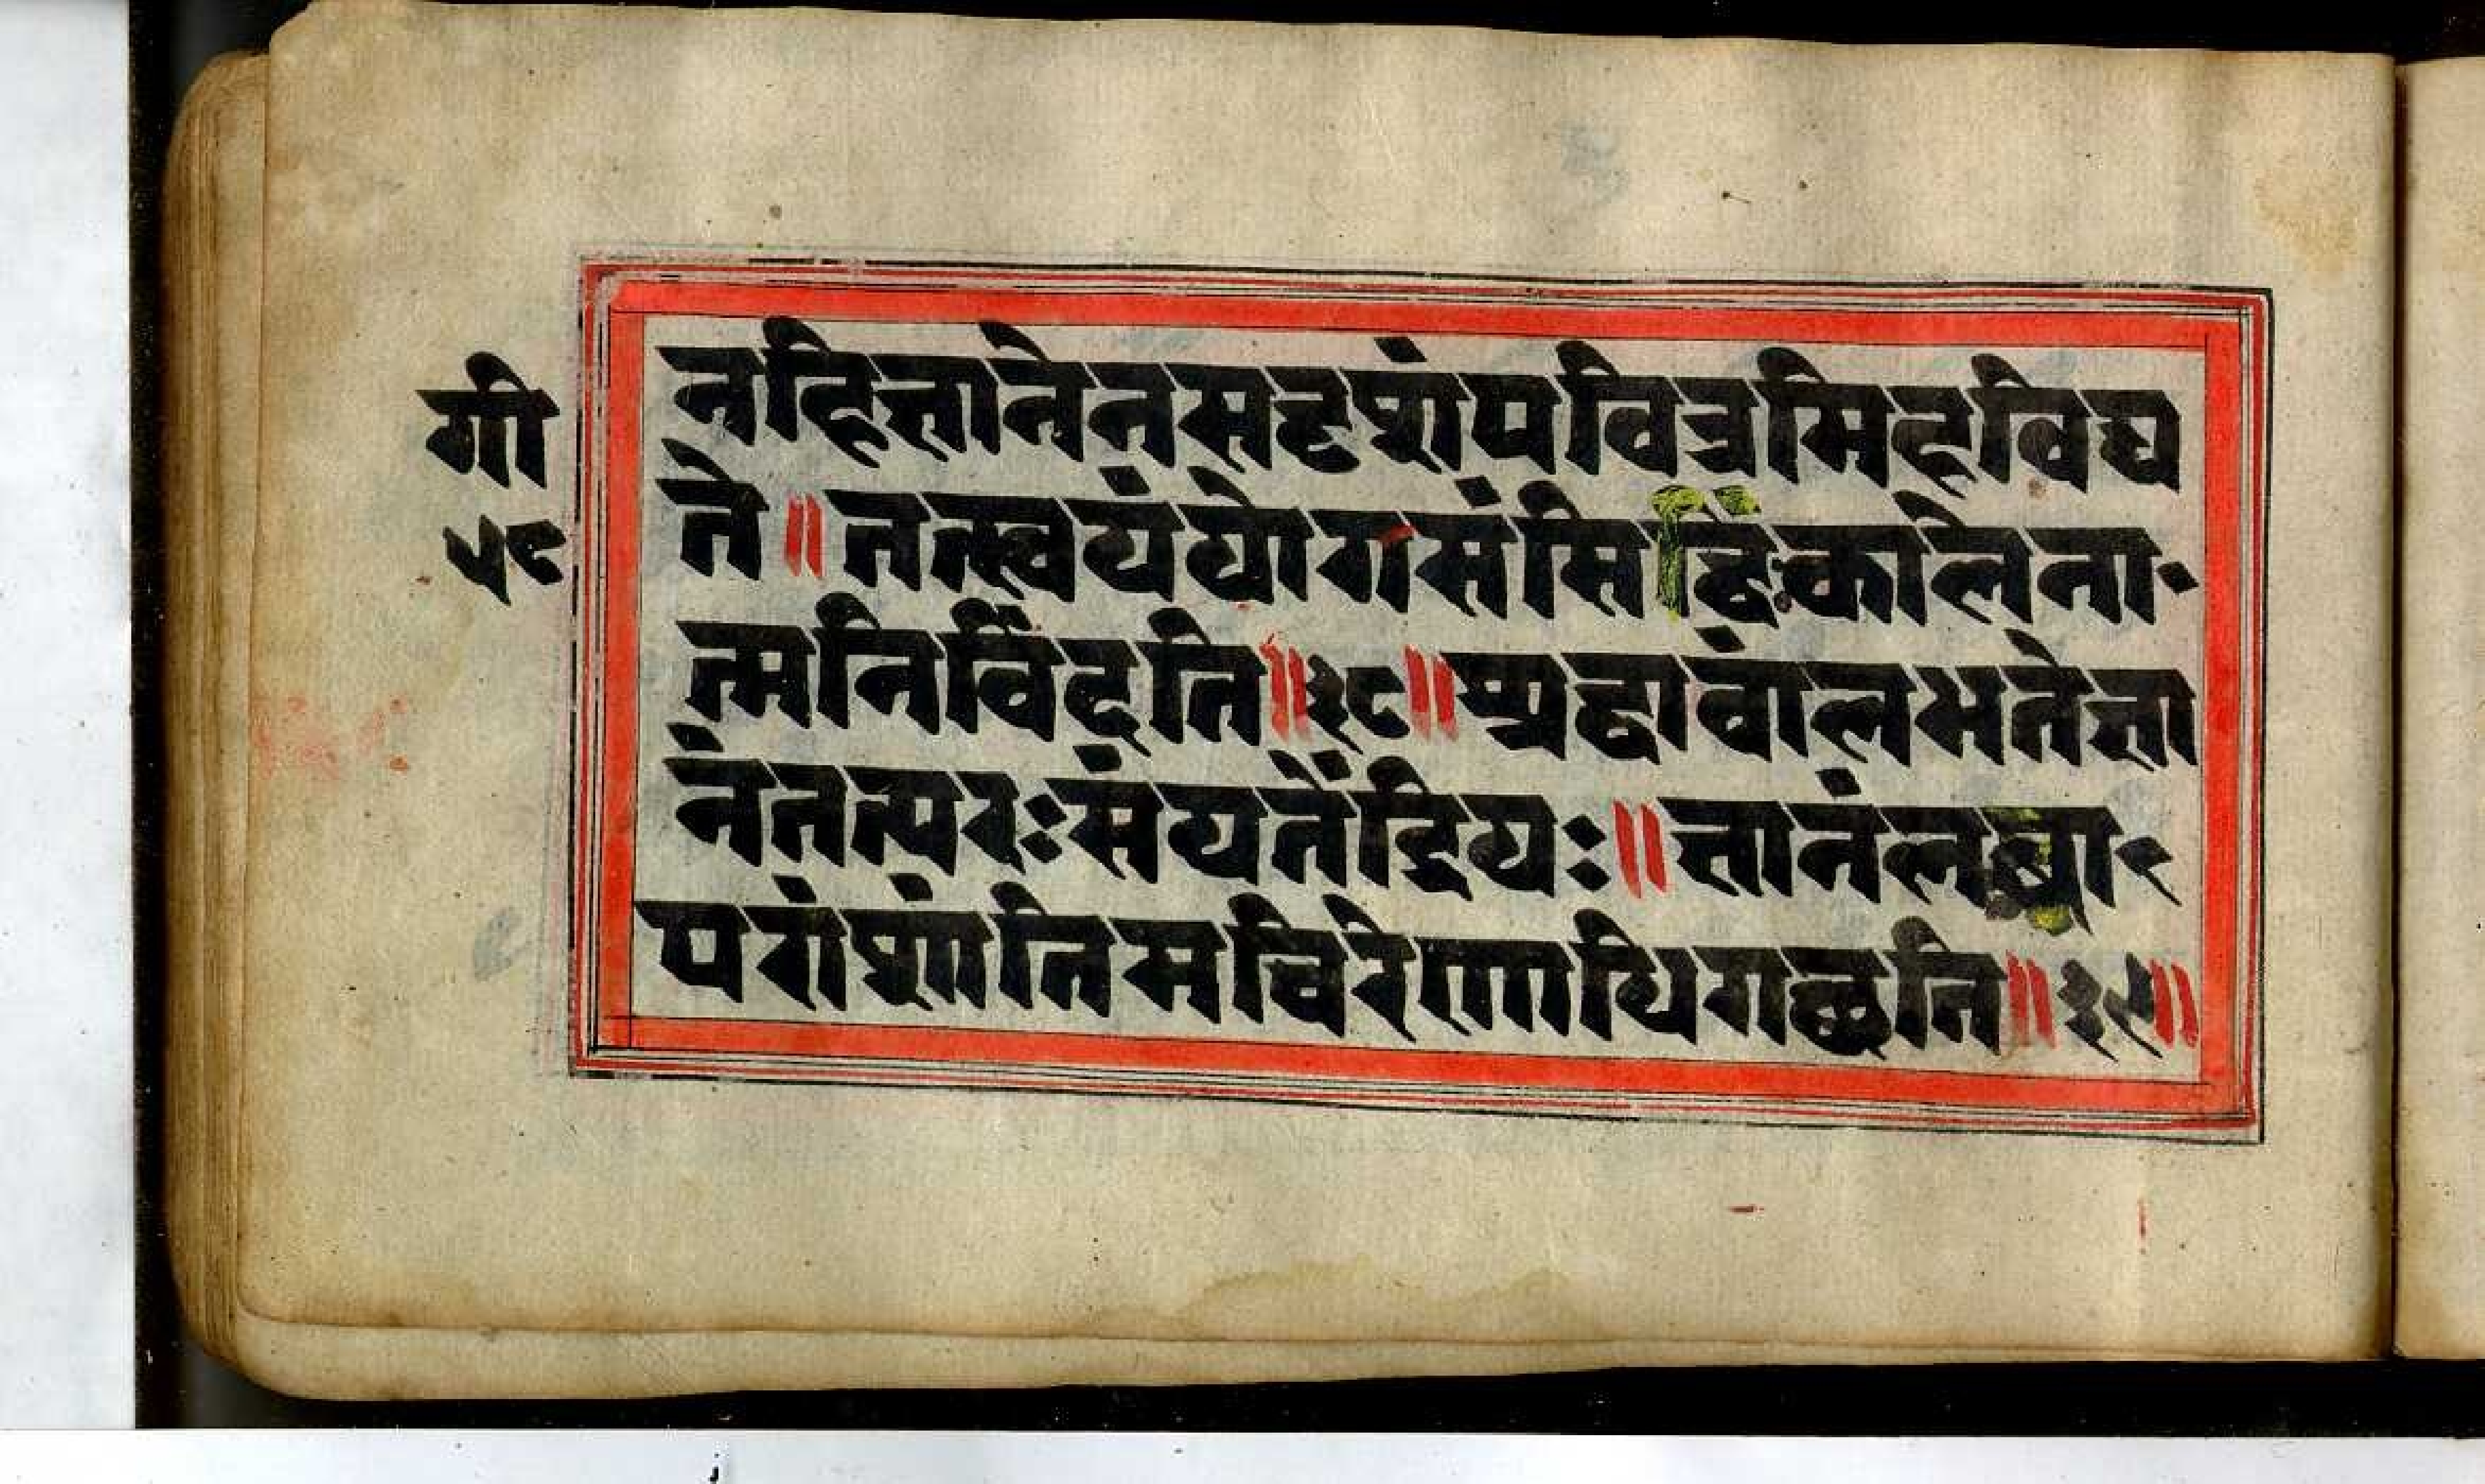 गी
५९
नहिज्ञानेनसदृशंपवित्रमिहविद्य
ते॥तत्स्वयंयोगसंसिद्धिःकालेना
त्मनिविंदति॥३८॥श्रद्धावांलभतेज्ञा
नंतत्परःसंयतेंद्रियः॥ज्ञानंलब्ध्वा
परांशांतिमचिरेणाधिगछति॥३९॥